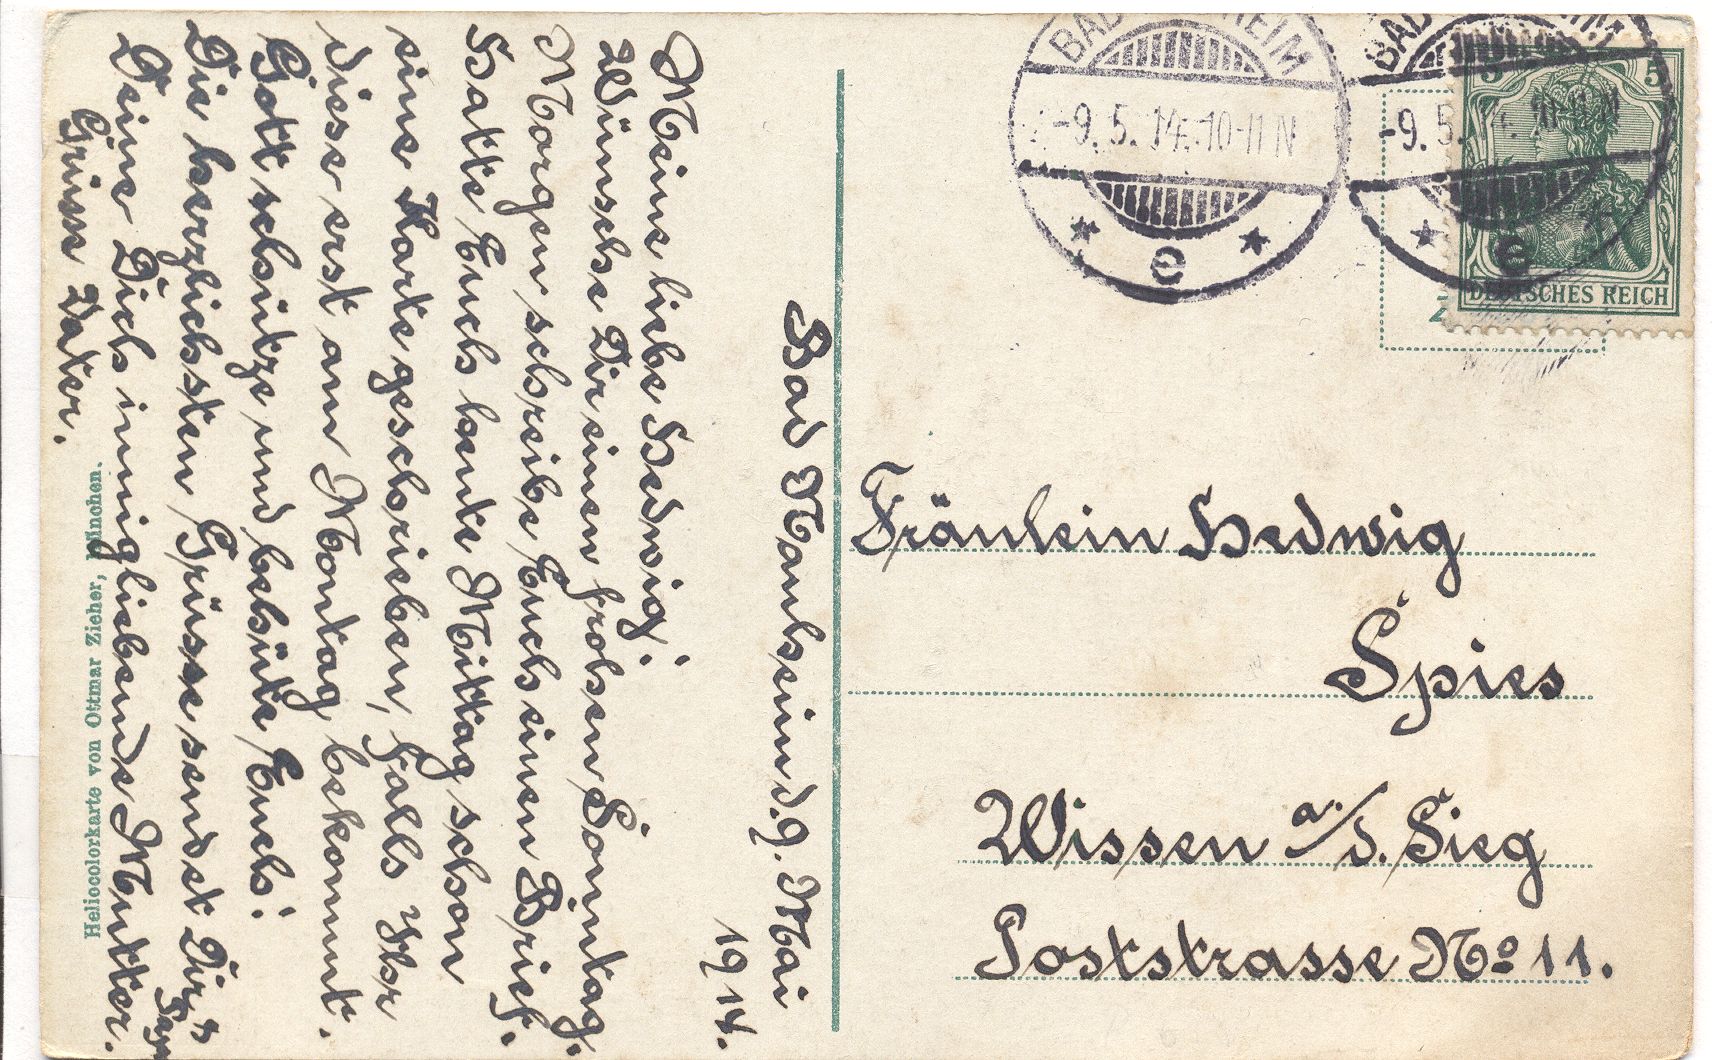 Bad Nauheim d. 9. Mai
1914.
Meine liebe Hedwig!
Wünsche Dir einen frohen Sonntag.
Morgen schreibe Euch einen Brief.
Hatte Euch heute Mittag schon
eine Karte geschrieben, falls Ihr
diese erst am Montag bekommt.
Gott schütze und behüte Euch!
Die herzlichsten Grüsse sendet Dir
Deine Dich innigliebende Mutter.
Grüsse Vater.
Heliocolorkarte von Ottmar Zieher, München.
BAD NAUHEIM
-9. 5. 14. 10-11 N
* e *
BAD NAUHEIM
-9. 5. 14. 10-11 N
* e
5 5
DEUTSCHES REICH
Fräulein Hedwig
Spies
Wissen a./d. Sieg
Poststrasse No 11.